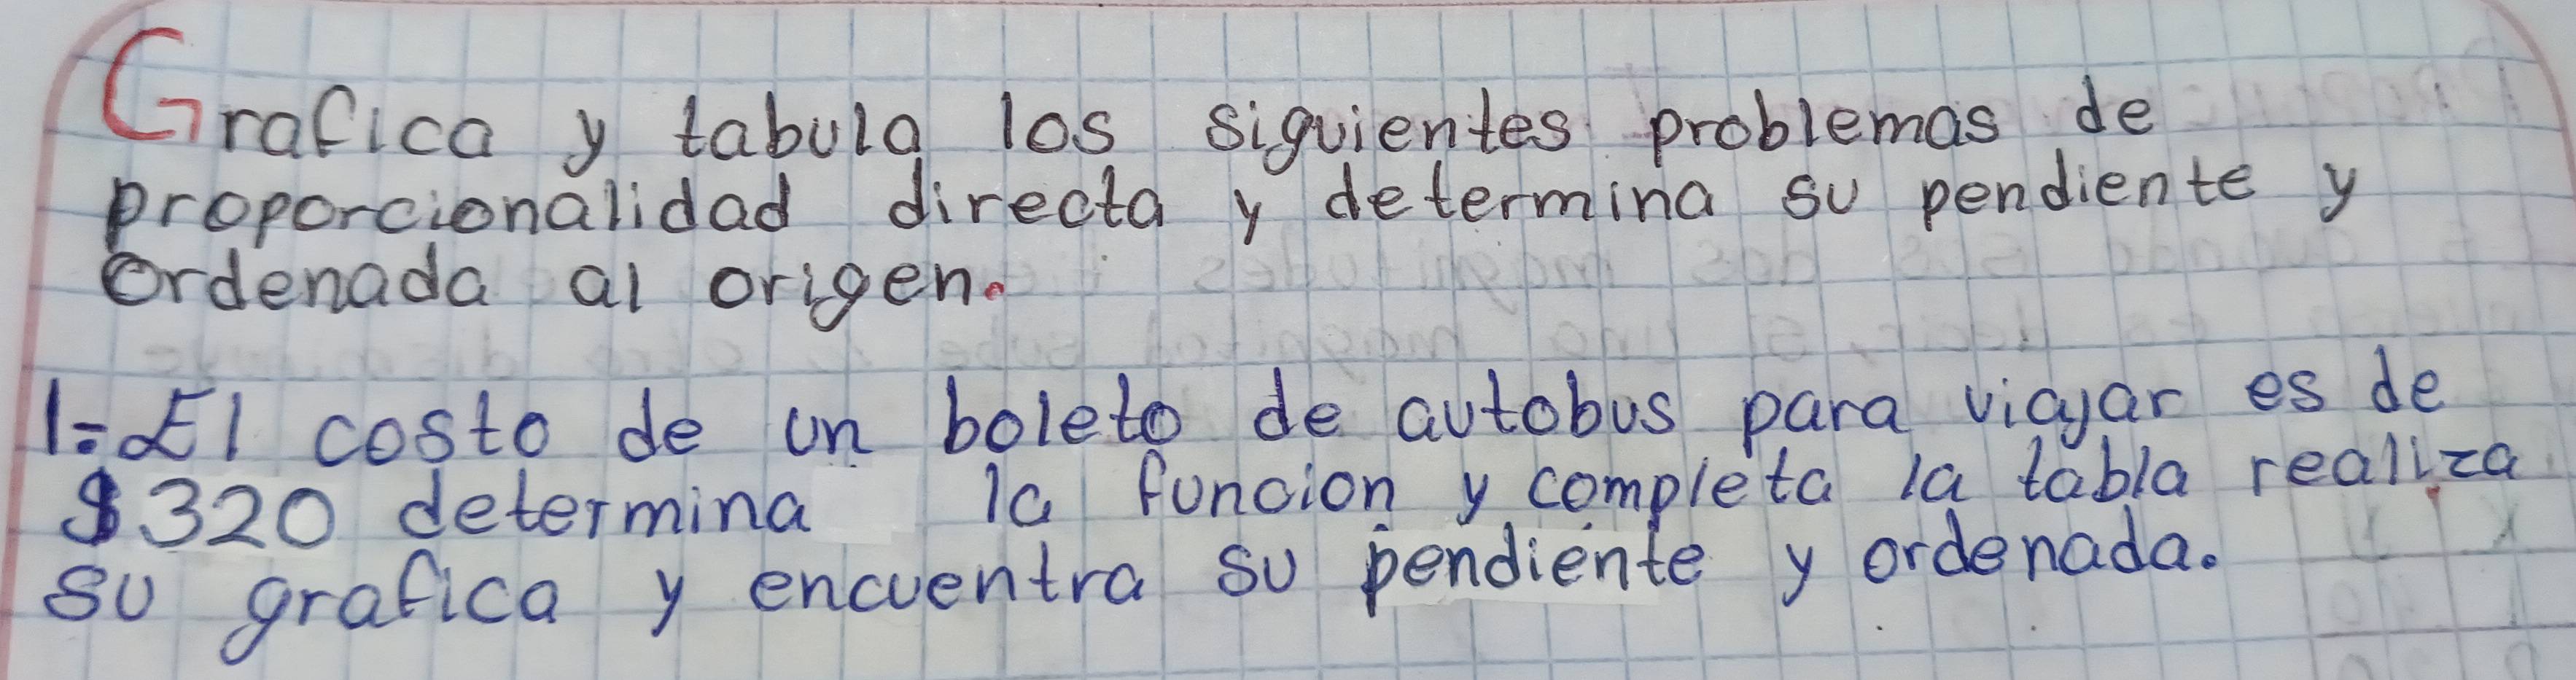 Grafica y tabula los siguientes problemas de
proporcionalidad directa y determina su pendiente y
Ordenada al origen.
1=El costo de un boleto de autobus para viajar es de
$320 determina la funcion y completa la tabla realiza
su grafica y encuentra su pendiente y ordenada.